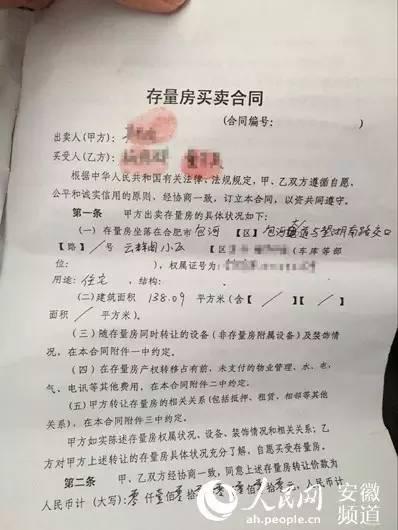 存量房买卖合同
(合同编号: )
出卖人(甲方):
买受人(乙方):
根据中华人民共和国有关法律、法规规定,甲、乙双方遵循自愿、
公平和诚实信用的原则,经协商一致,订立本合同,以资共同遵守。
第一条 甲方出卖存量房的具体状况如下:
(一)存量房坐落在合肥市 包河 【区】 包河道与望湖南路交口
【路】 / 号 云栖阁小区 【区 (车库等部
位: ),权属证号为:
用途: 住宅 ,结构:
(二)建筑面积 138.09 平方米(含【 / 】【 / 】
面积 / 平方米)。
(三)随存量房同时转让的设备(非存量房附属设备)及装饰情
况,在本合同附件一中约定。
(四)在存量房产权转移占有前,未支付的物业管理、水、电、
气、电讯等其他费用,在本合同附件二中约定。
(五)甲方转让存量房的相关关系(包括抵押、租赁、相邻等其他
关系),在本合同附件三中约定。
甲方如实陈述存量房权属状况、设备、装饰情况和相关关系;乙
方对甲方上述转让的存量房具体状况充分了解,自愿买受存量房。
第二条 甲、乙双方经协商一致,同意上述存量房转让价款为
人民币(大写): 零 仟壹佰零拾 佰 拾零元,人民币计
人民网 安徽频道
ah.people.com.cn